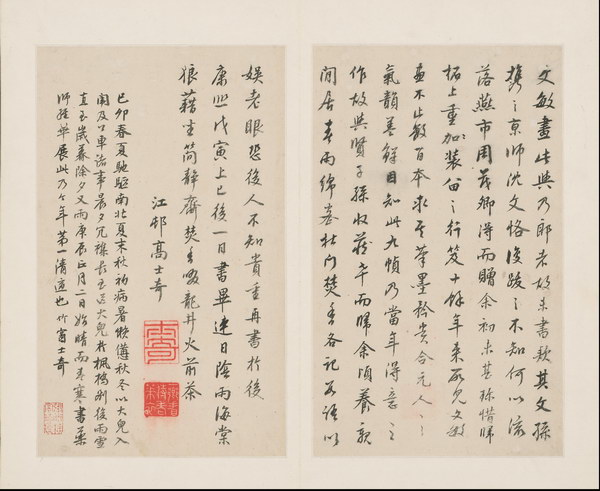 文敏畫此與乃郎者故未書款其文孫
攜之京師沈文恪後跋之不知何以流
落燕市周茂卿得而贈余初未甚珍惜歸
柘上重加裝𤲞之行笈十餘年來所見文敏
畫不止數百本求其筆墨矜貴合元人之
氣韻善鮮目知此九幀乃當年得意之
作故與賢子孫收藏乎而歸余頃養親
閒居春雨綿密杜門焚香各記數語以
娛老眼恐後人不知貴重再書於後
康熙戊寅上巳後一日書畢連日陰雨海棠
狼藉坐簡靜齋焚香啜龍井火前茶
江邨高士奇
己卯春夏馳驅南北夏末秋初病暑懨懨秋冬以大兒入
闈及公車諸事晨夕冗襍長至送大兒於楓橋別後雨雪
直至歲暮除夕又雨庚辰正月二日始晴而春寒書案
師從筆展此乃今年第一清適也竹窗士奇